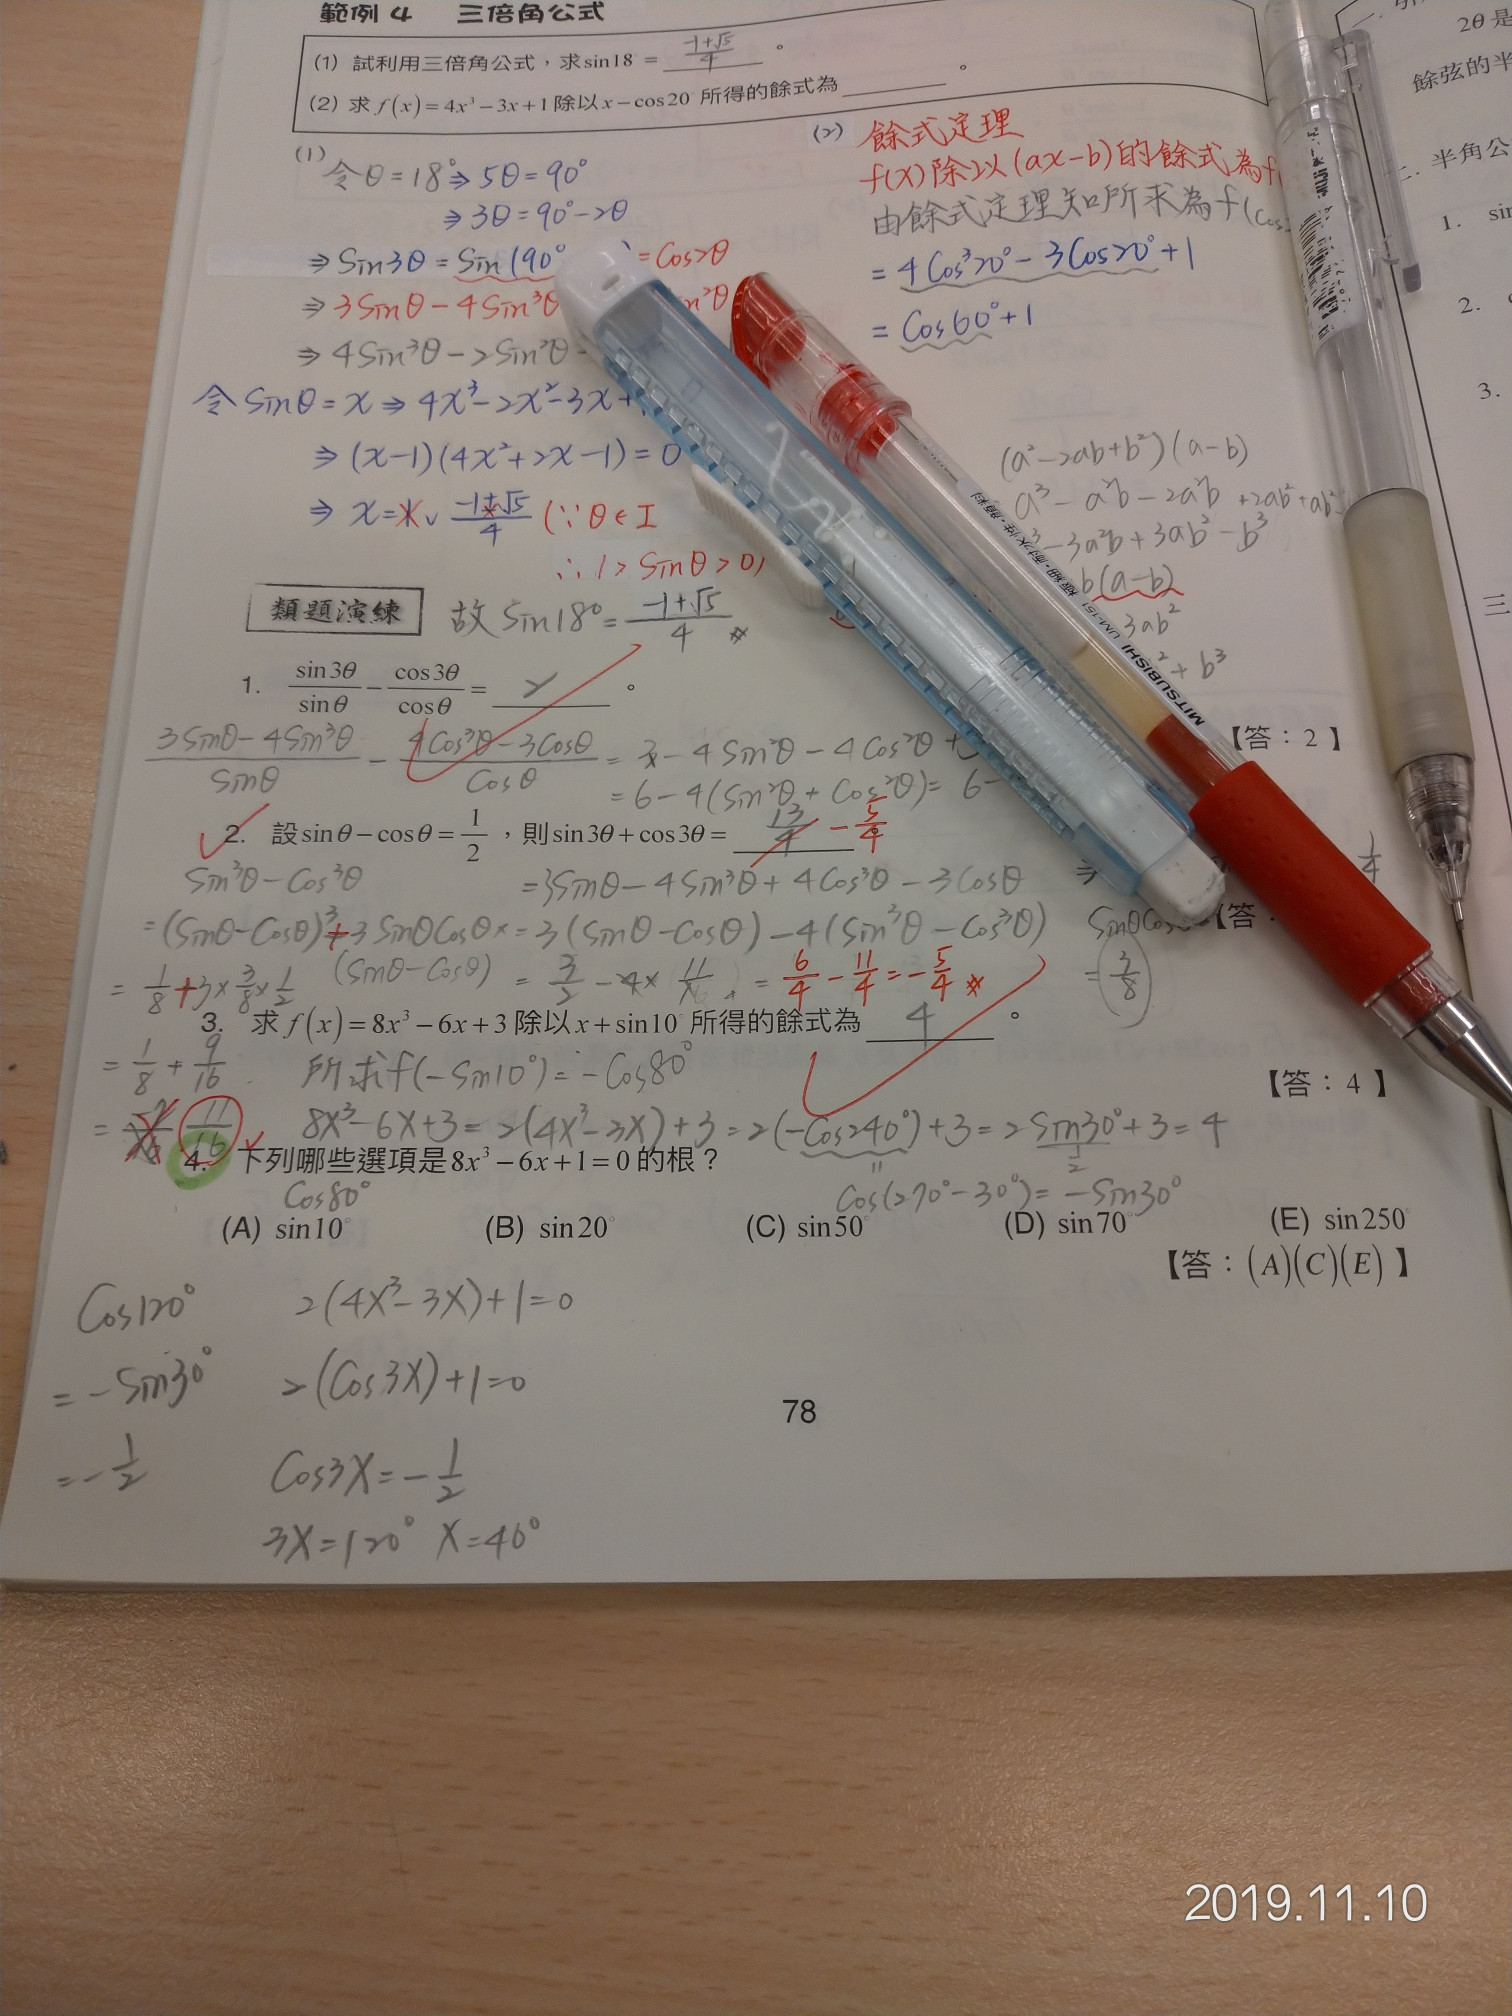 範例 4 三倍角公式
(1) 試利用三倍角公式，求sin18° = (-1+√5)/4 。
(2) 求 f(x)=4x³−3x+1除以x−cos20°所得的餘式為________。
(1) 令θ=18°⇒5θ=90°
⇒3θ=90°-2θ
⇒Sin3θ=Sin(90° =Cos2θ
⇒3Sinθ-4Sin³θ
⇒4Sin³θ-2Sin²θ-
令Sinθ=x⇒4x³-2x²-3x+
⇒(x-1)(4x²+2x-1)=0
⇒x=1∨(-1±√5)/4 (∵θ∈I
∴1>Sinθ>0)
(2) 餘式定理
f(x)除以(ax-b)的餘式為f
由餘式定理知所求為f(cos
=4Cos³20°-3Cos20°+1
=Cos60°+1
(a²-2ab+b²)(a-b)
a³-a²b-2a²b+2ab²+ab²
-3a²b+3ab²-b³
b(a-b)
3ab²
+b³
類題演練 故Sin18°=(-1+√5)/4
1. sin3θ/sinθ − cos3θ/cosθ = 2 。
(3Sinθ-4Sin³θ)/Sinθ - (4Cos³θ-3Cosθ)/Cosθ = 3-4Sin²θ-4Cos²θ+
【答：2】
=6-4(Sin²θ+Cos²θ)=6-
2. 設sinθ−cosθ=1/2，則sin3θ+cos3θ= 13/4 -5/4
1/4
Sin³θ-Cos³θ =3Sinθ-4Sin³θ+4Cos³θ-3Cosθ ⇒
【答：
=(Sinθ-Cosθ)³+3SinθCosθ× =3(Sinθ-Cosθ)-4(Sin³θ-Cos³θ)
=1/8+3×3/8×1/2 (Sinθ-Cosθ) =3/2-4×11/16 =6/4-11/4=-5/4 =3/8
3. 求f(x)=8x³−6x+3除以x+sin10°所得的餘式為 4 。
=1/8+9/16 所求f(-Sin10°)=-Cos80°
【答：4】
= 11/16 8X³-6X+3=2(4X³-3X)+3=2(-Cos240°)+3=2Sin30°+3=4
1/2
4. 下列哪些選項是8x³−6x+1=0的根？
Cos80° Cos(270°-30°)=-Sin30°
(A) sin10° (B) sin20° (C) sin50° (D) sin70° (E) sin250°
【答：(A)(C)(E)】
Cos120° 2(4X³-3X)+1=0
=-Sin30° 2(Cos3X)+1=0
=-1/2 Cos3X=-1/2
3X=120° X=40°
78
2θ是
餘弦的半
半角公
1. sin
2.
3.
三
MITSUBISHI UM-151 極細・耐水性・顏料
2019.11.10